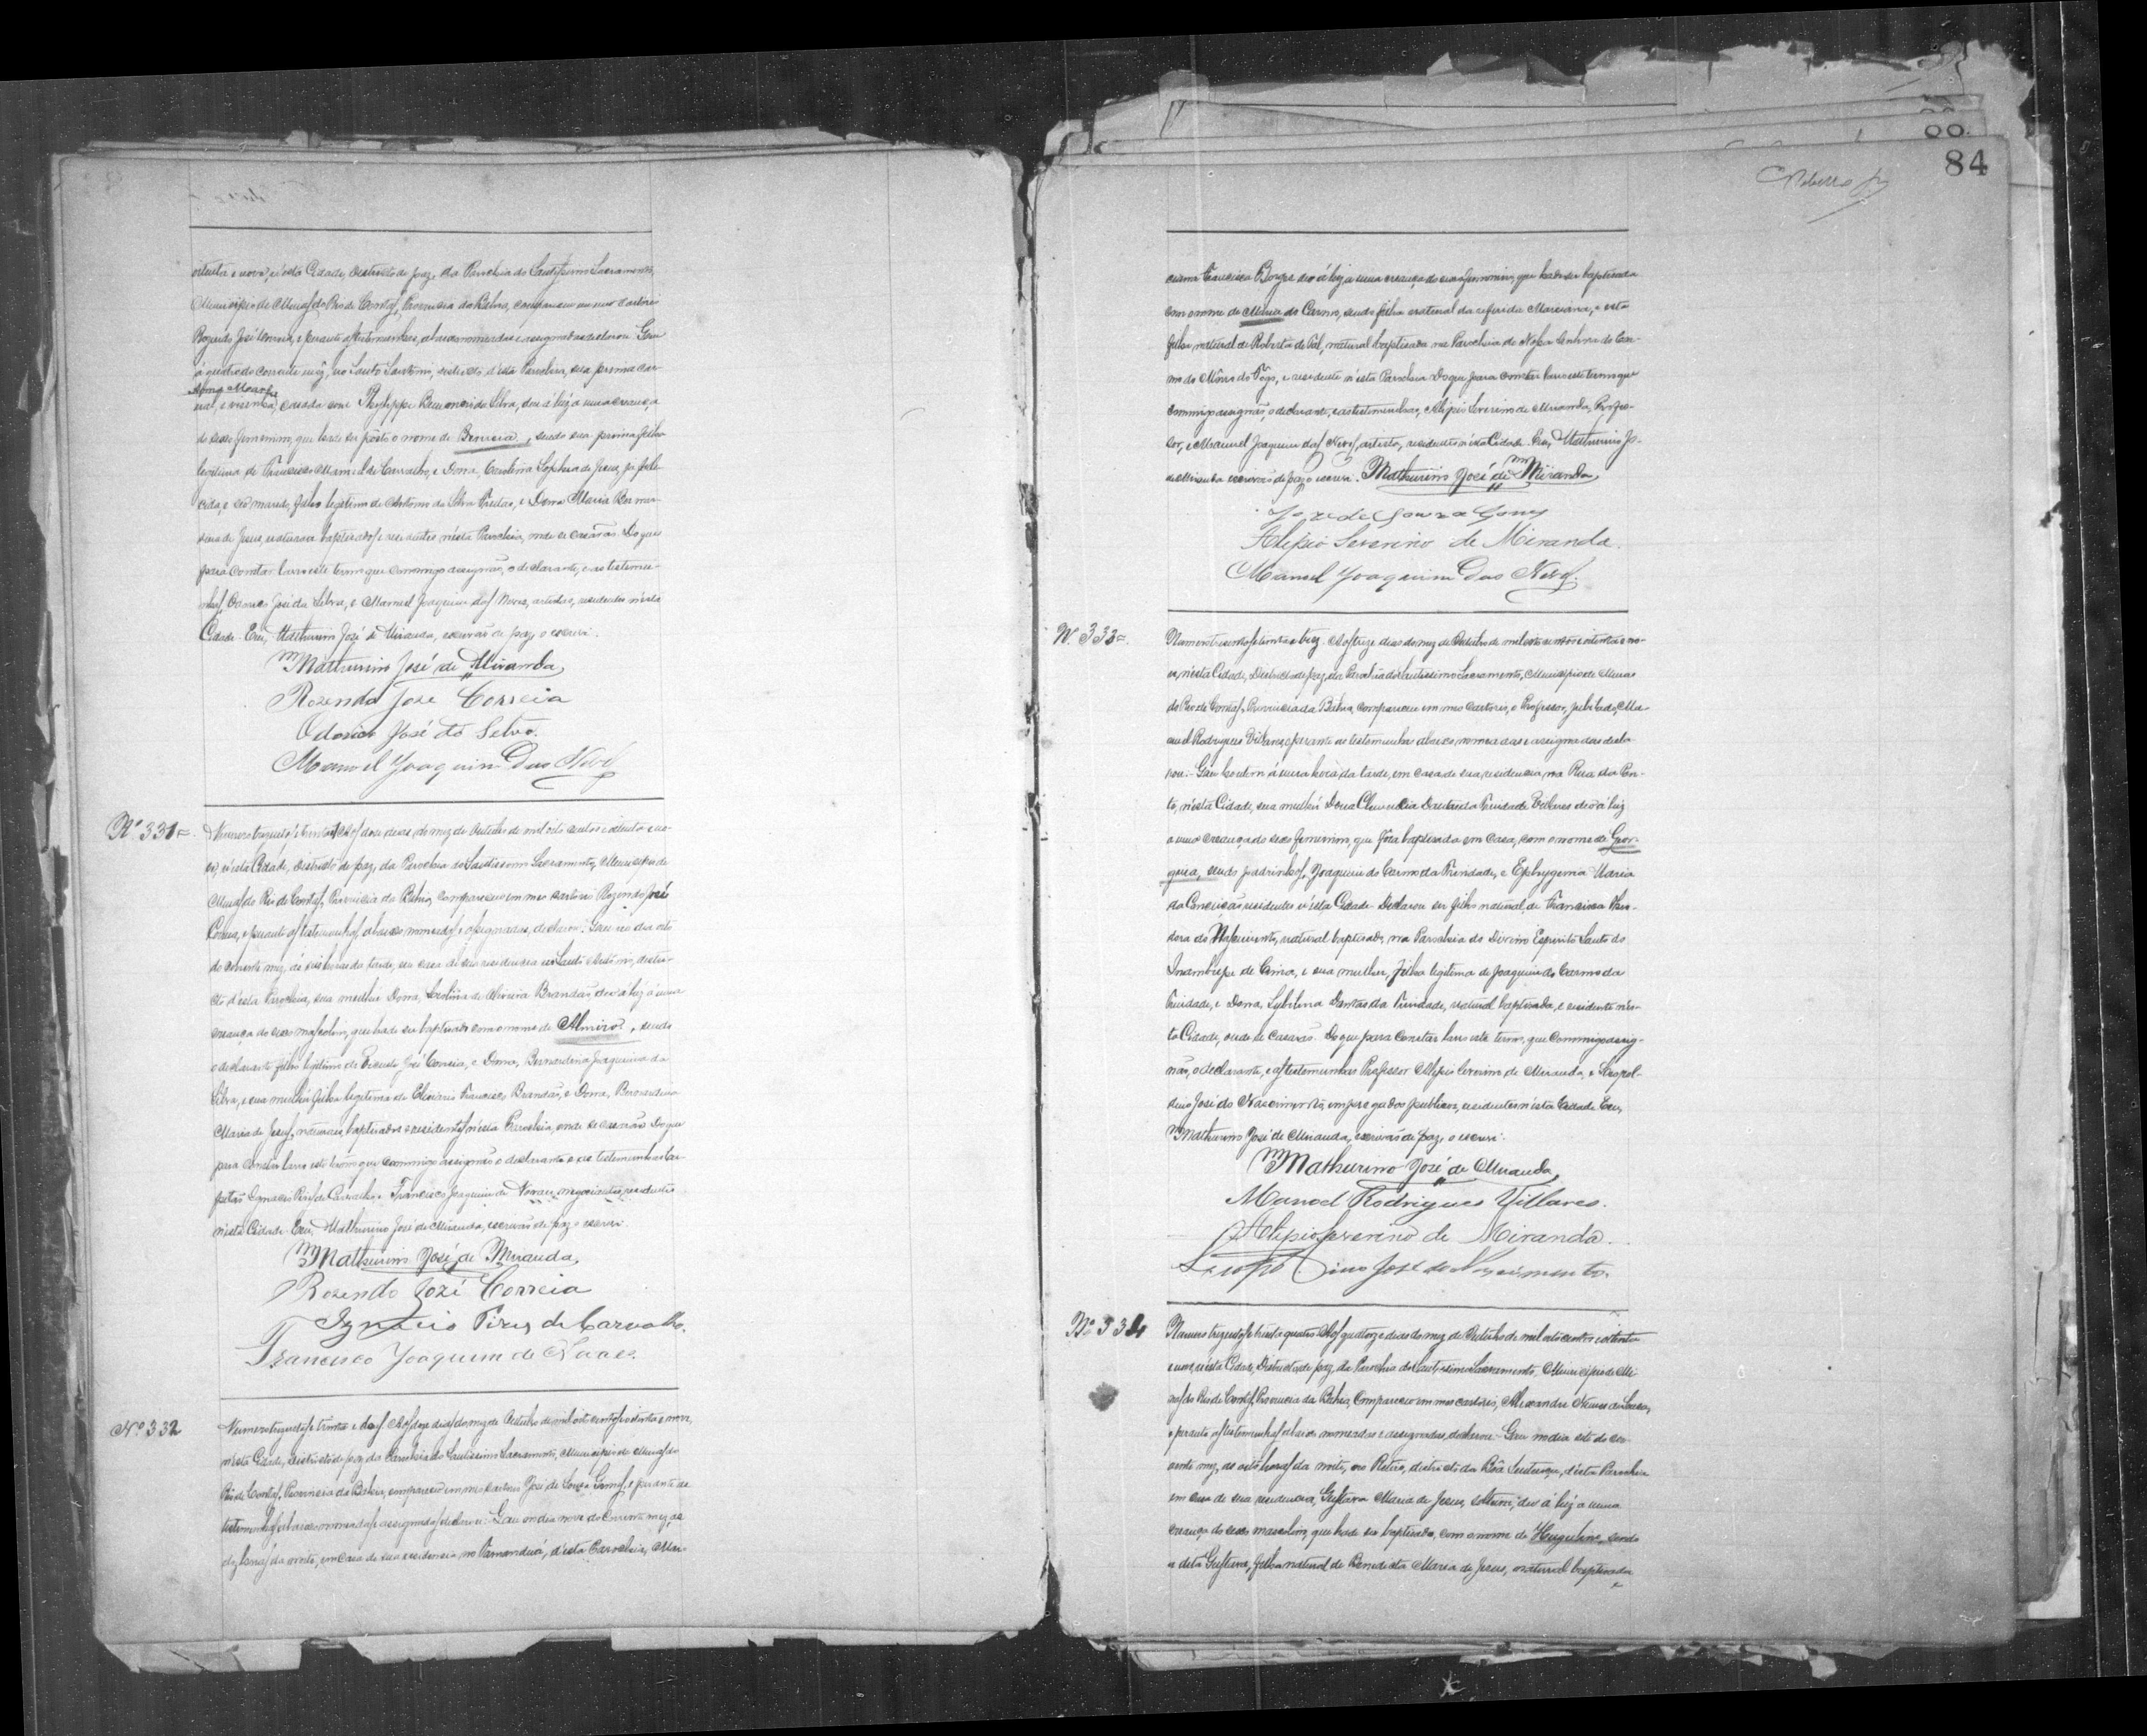 oitenta e nove, n'esta Cidade, districto de paz, da Parochia do Santissimo Sacramento,
Municipio de Minas do Rio de Contas, Provincia da Bahia, compareceu em meu cartorio
Rozendo José Correia, e perante as testemunhas, abaixo nomeadas e assignadas declarou: Que
á quatro do corrente mez, no Santo Antonio, districto, d'esta Parochia, sua prima
casada com Phelippe Benicio da Silva, deu á luz a uma creança
do sexo femenino, que hade ser posto o nome de, sendo sua prima filha
legitima de Francisco Manoel de Carvalho, e Dona, Carolina Sophia de Jesus, já fale-
cida, e seo marido, filho legitimo de Antonio da Silva, e Dona Maria Bernar-
dina de Jesus, naturaes baptisados e residentes n'esta Parochia, onde se casarão. Do que
para constar lavro este termo que commigo assignão, o declarante, e as testemu-
nhas, Odorico José da Silva, e Manoel Joaquim das Neves, artistas, residentes n'esta
Cidade. Eu, Mathurino José de Miranda, escrivão de paz, o escrevi.
Mathurino José de Miranda
Rozendo José Correia
Odorico José da Silva.
Manoel Joaquim das Neves
Nº 331=
Numero trezentos e trinta e um. Aos doze dias, do mez de Outubro de mil oito centos e oitenta e no-
ve, n'esta Cidade, districto de paz, da Parochia do Santissimo Sacramento, Municipio de
Minas do Rio de Contas, Provincia da Bahia, compareceu em meu cartorio Rozendo José
Correia, e perante as testemunhas, abaixo nomeadas e assignadas, declarou: Que no dia oito
do corrente mez, ás seis horas da tarde, em casa de sua residencia no Santo Antonio, distri-
cto d'esta Parochia, sua mulher Dona, de Oliveira Brandão, deo á luz á uma
creança do sexo masculino, que hade ser baptisado com o nome de Almiro, sendo
o declarante filho legitimo de José Correia, e Dona, Bernardina Joaquina da
Silva, e sua mulher filha legitima de Francisco Brandão, e Dona, Bernardina
Maria de Jesus, naturaes, baptisados e residentes n'esta Parochia, onde se casarão. Do que
para constar lavro este termo que commigo assignão o declarante e as testemunhas Ca-
pitão Ignacio Pires de Carvalho, e Francisco Joaquim de Novaes, negociantes, residentes
n'esta Cidade. Eu, Mathurino José de Miranda, escrivão de paz o escrevi.
Mathurino José de Miranda
Rozendo José Correia
Ignacio Pires de Carvalho.
Francisco Joaquim de Novaes.
Nº 332
Numero trezentos e trinta e dous. Aos doze dias do mez de Outubro de mil oito centos e oitenta e nove,
n'esta Cidade, districto de paz, da Parochia do Santissimo Sacramento, Municipio de Minas do
Rio de Contas, Provincia da Bahia, compareceu em meu cartorio José de Souza Gomes, e perante as
testemunhas abaixo nomeadas e assignadas declarou: Que no dia nove do corrente mez, ás
dez horas da noite, em casa de sua residencia no, d'esta Parochia, Mar-
84
ciana Francisca Borges deo á luz a uma creança do sexo femenino, que hade ser baptisada
com o nome de Maria do Carmo, sendo filha natural da referida Marciana, e esta
filha natural de Roberta de Tal, natural baptisada na Parochia de Nossa Senhora do Car-
mo do Morro do Fogo, e residente n'esta Parochia. Do que para constar lavro este termo que
commigo assignão, o declarante, e as testemunhas, Alipio Severino de Miranda, Profes-
sor, e Manoel Joaquim das Neves, artista, residentes n'esta Cidade. Eu, Mathurino Jo-
de Miranda escrivão de paz o escrevi. Mathurino José de Miranda
José de Souza Gomes
Alipio Severino de Miranda.
Manoel Joaquim das Neves.
Nº 333=
Numero trezentos e trinta e trez. Aos treze dias do mez de Outubro de mil oito centos e oitenta e no-
ve, n'esta Cidade, Districto de paz, da Parochia do Santissimo Sacramento, Municipio de Minas
do Rio de Contas, Provincia da Bahia, compareceu em meu cartorio, o Professor, jubilado, Ma-
noel Rodrigues Villares, e perante as testemunhas abaixo, nomeadas e assignadas decla-
rou: Que hontem á uma hora da tarde, em casa de sua residencia, na Rua da Pon-
te, n'esta Cidade, sua mulher Dona Clemencia Dantas da Trindade Villares deo á luz
a uma creança do sexo femenino, que fôra baptisada em casa, com o nome de Geor-
gina, sendo padrinhos, Joaquim do Carmo da Trindade, e Ephygenia Maria
da Conceição residentes n'esta Cidade. Declarou ser filho natural, de Francisca
do Nascimento, natural baptisado, na Parochia do Divino Espirito Santo do
Inambupe de Cima, e sua mulher, filha legitima de Joaquim do Carmo da
Trindade, e Dona, Dantas da Trindade, natural baptisada, e residente n'es-
ta Cidade, onde se casarão. Do que para constar lavro este termo, que commigo assig-
não, o declarante, e as testemunhas Professor Alipio Severino de Miranda, e Leopol-
dino José do Nascimento, empregados publicos, residentes n'esta Cidade. Eu,
Mathurino José de Miranda, escrivão de paz, o escrevi.
Mathurino José de Miranda
Manoel Rodrigues Villares.
Alipio Severino de Miranda.
Leopoldino José do Nascimento.
Nº 334
Numero trezentos e trinta quatro. Aos quatorze dias do mez de Outubro de mil oito centos e oitenta
e nove, n'esta Cidade, Districto de paz, da Parochia do Santissimo Sacramento, Municipio de Mi-
nas do Rio de Contas, Provincia da Bahia, compareceu em meu cartorio, Alexandre Nunes de Souza,
e perante as testemunhas abaixo nomeadas e assignadas, declarou: Que no dia sete do cor-
rente mez, as oito horas da noite, no Retiro, districto da Bôa Sentença, d'esta Parochia
em casa de sua residencia, Gustava Maria de Jesus, solteira, deo á luz a uma
creança do sexo masculino, que hade ser baptisado, com o nome de Hugulino, sendo
a dita Gustava, filha natural de Benedicta Maria de Jesus, natural baptisada